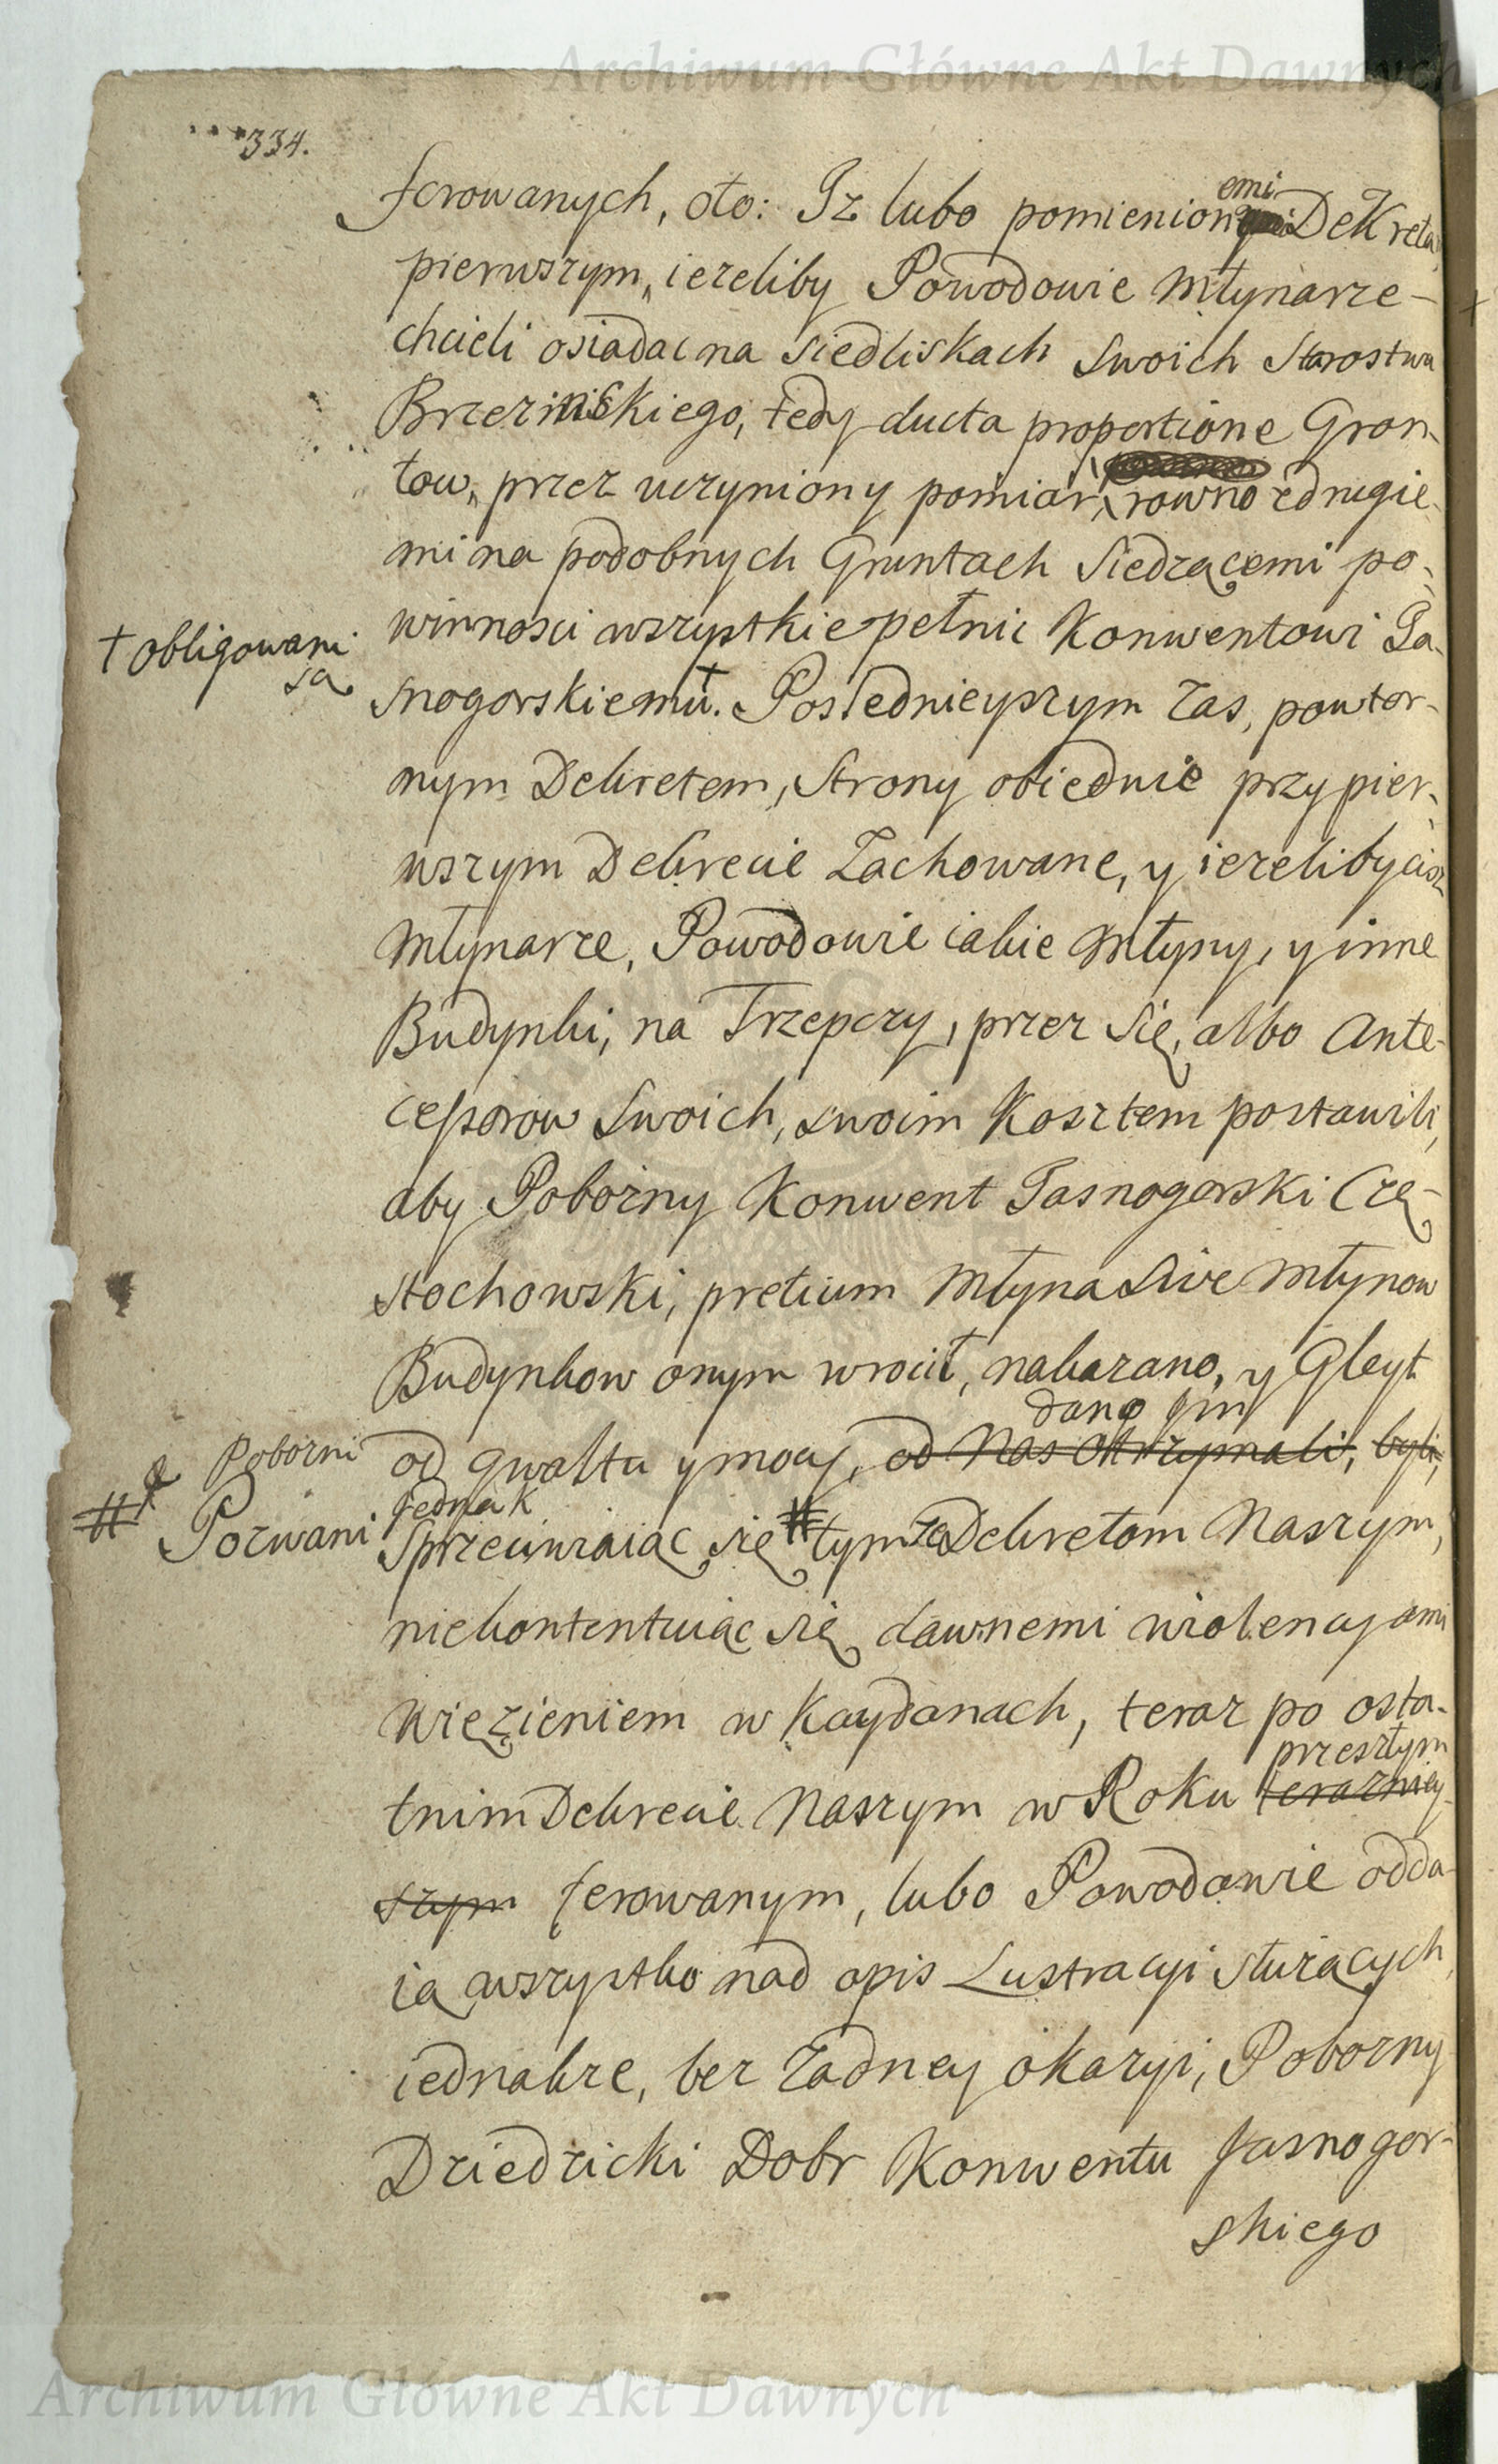 Archiwum Główne Akt Dawnych
334.
ferowanych, oto: Iz lubo pomienionemi Dekreta
pierwszym, iezeliby Powodowie Młynarze
chcieli osiadac na Siedliskach Swoich Starostwa
Brzezinskiego, tedy ducta proportione Gron-
tow, przez uczyniony pomiar, rowno zdrugie-
mi na podobnych Gruntach Siedzącemi po-
winnosci wszystkie pełnic Konwentowi Ja-
† obligowani
są
snogorskiemu.† Poslednieyszym zas, powtor-
nym Dekretem, Strony obiednie przy pier-
wszym Dekrecie Zachowane, y iezeliby ciz
Młynarze, Powodowie iakie Młyny, y inne
Budynki, na Trzepczy, przez Się, albo Ante-
cessorow Swoich, swoim Kosztem postawili,
aby Pobożny Konwent Jasnogorski Czę-
stochowski, pretium Młyna Sive Młynow
Budynkow onym wrocił, nakazano, y Gleyt
dano im
od gwałtu y mocy, od Nas otrzymali, byli,
Pobozni
# Pozwani
jednak
Sprzeciwiaiąc się # tym ze Dekretom Naszym,
niekontentuiąc się dawnemi wiolencyami
Więzieniem w Kaydanach, teraz po osta-
przeszłym
tnim Dekrecie Naszym w Roku terazniey-
szym ferowanym, lubo Powodowie odda-
ią wszystko nad opis Lustracyi słuzących
iednakze, bez zadney okazyi, Pobozny
Dziedzicki Dobr Konwentu Jasnogor-
skiego
Archiwum Główne Akt Dawnych